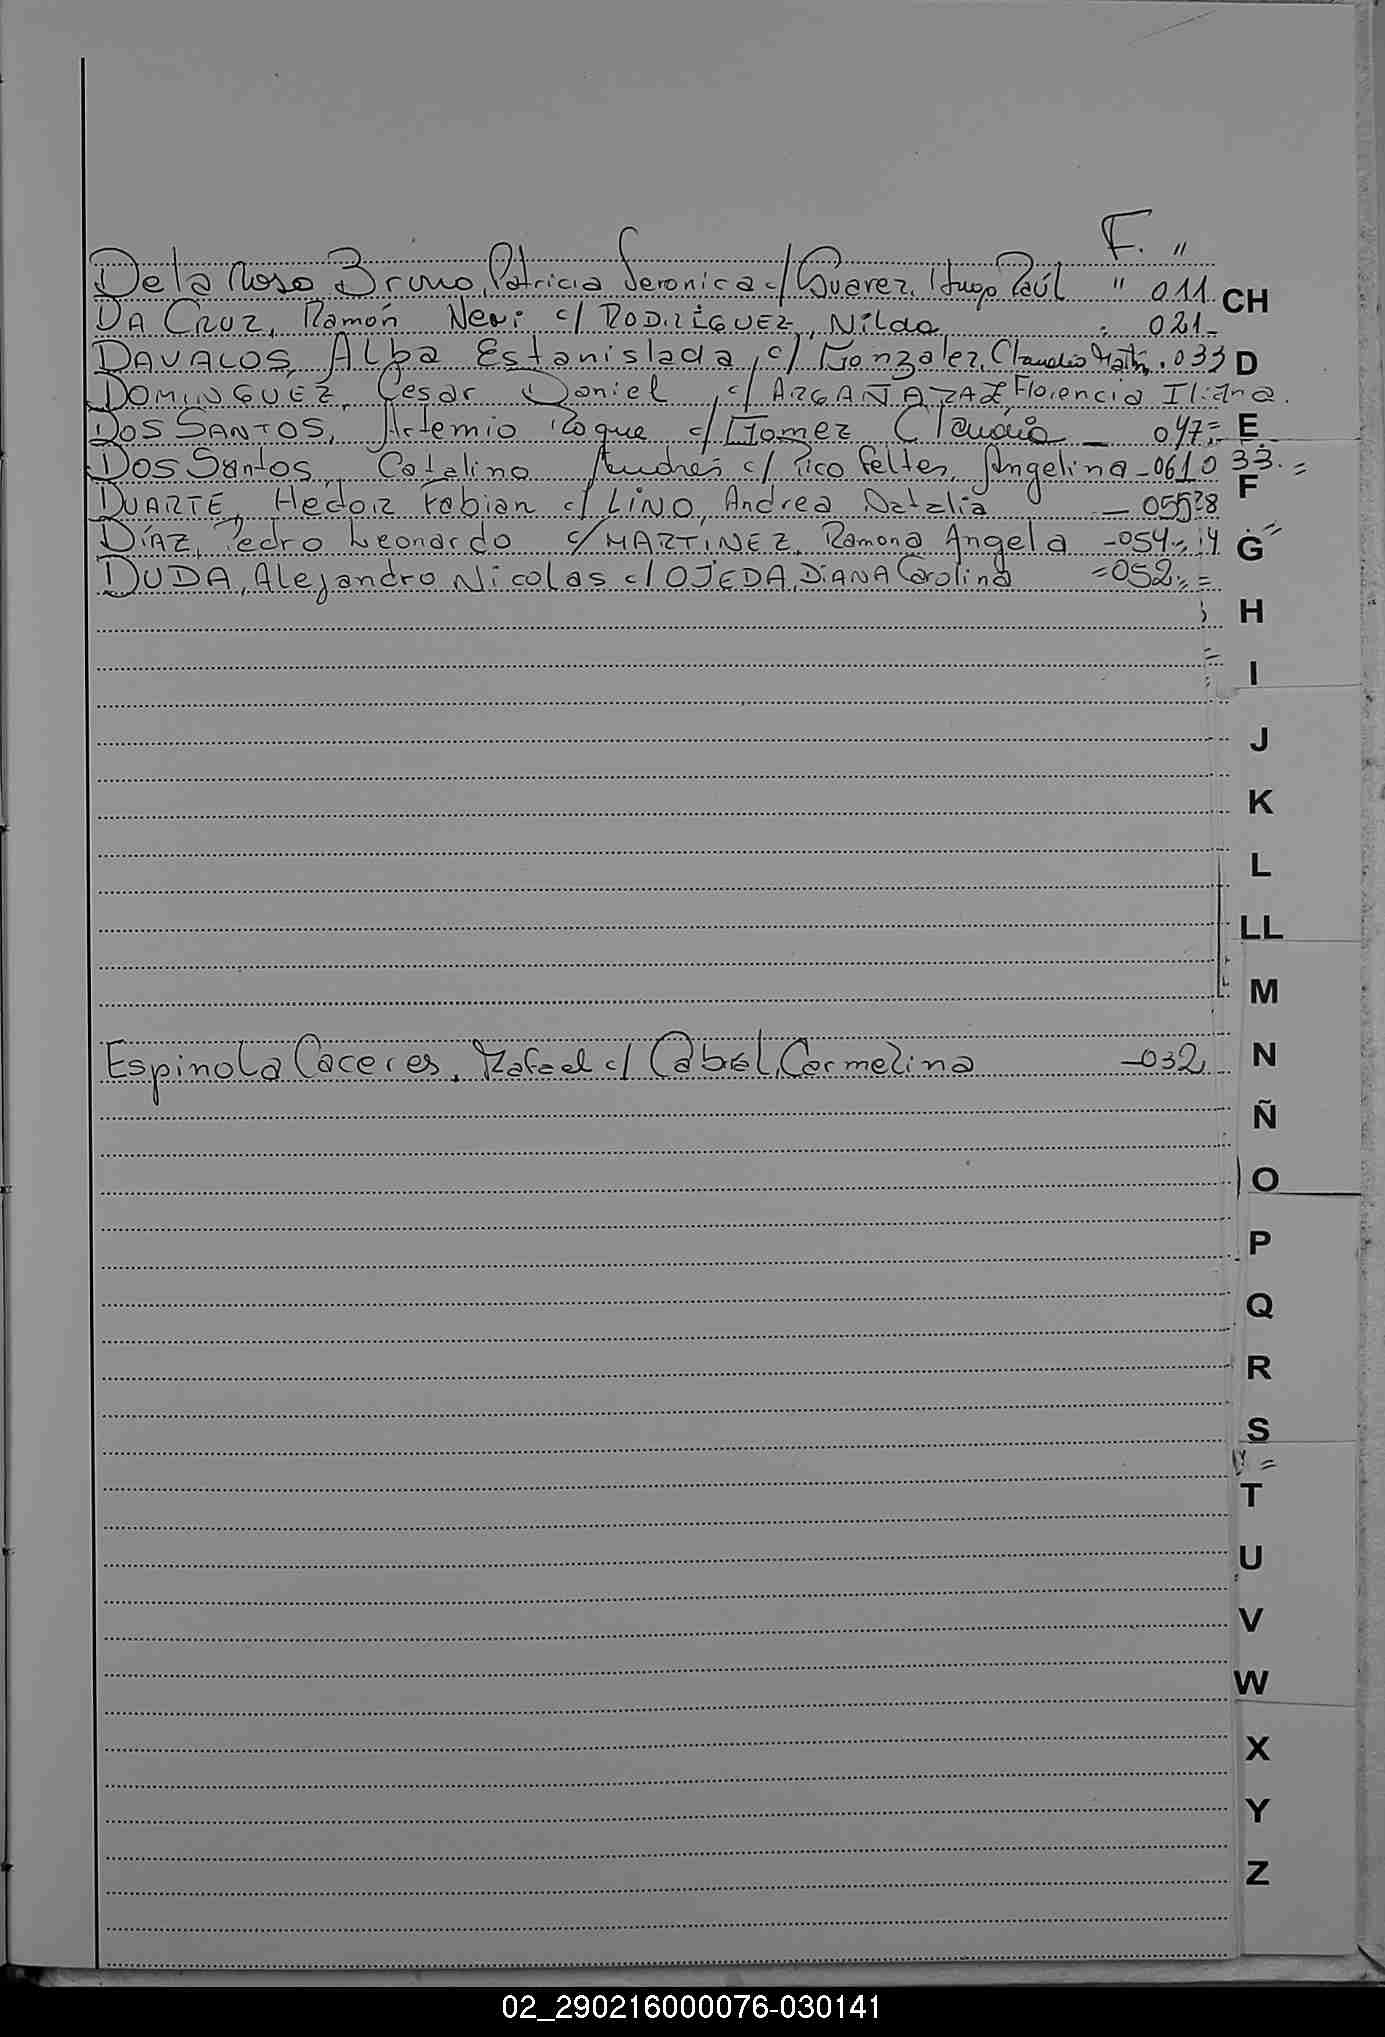 F. "
De la Rosa Bruno, Patricia Veronica c/ Suarez, Hugo Raúl " 011 CH
DA CRUZ, Ramón Neri c/ RODRÍGUEZ, Nilda 021
DAVALOS, Alba Estanislada, c/ Gonzalez, Claudio Matín. 033 D
DOMINGUEZ, Cesar Daniel, c/ ARGAÑARAZ Florencia Iliana.
DOS SANTOS, Artemio Roque c/ Gomez Claudia - 047 = E
Dos Santos, Catalino Andrés c/ Pico Feltes, Angelina - 061 033. =
DUARTE, Hector Fabian c/ LINO, Andrea Natalia - 055 F
DÍAZ, Pedro Leonardo c/ MARTINEZ, Ramona Angela - 054 G
DUDA, Alejandro Nicolas c/ OJEDA, DIANA Carolina = 052 =
H
I
J
K
L
LL
M
Espinola Caceres, Rafael c/ Cabral, Carmelina - 032 N
Ñ
O
P
Q
R
S
T
U
V
W
X
Y
Z
02_290216000076-030141